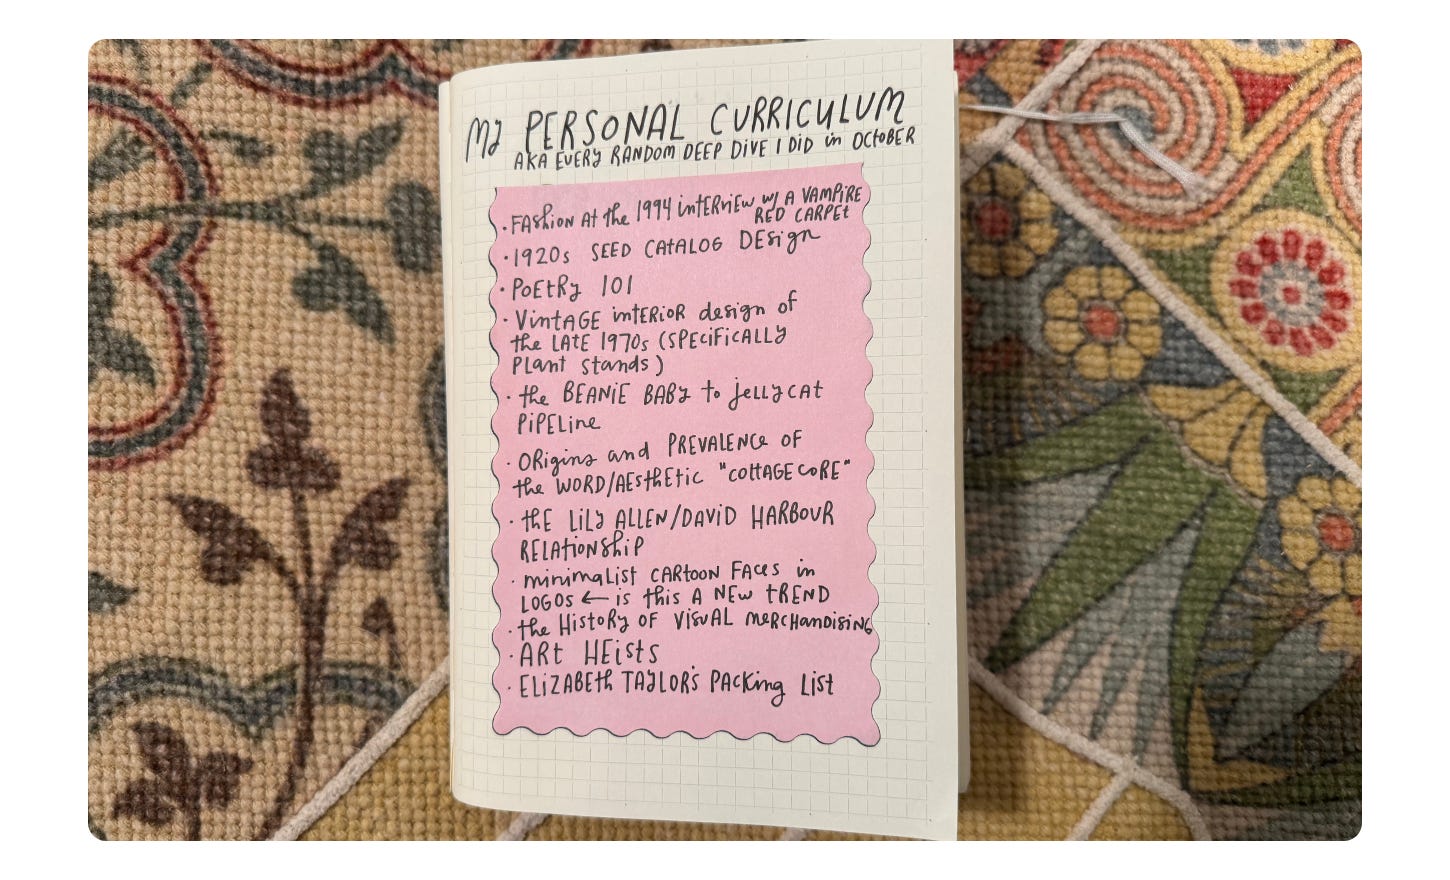 My PERSONAL CURRICULUM
AKA EVERY RANDOM DEEP DIVE I DID in OCTOBER
• FAShion At the 1994 intERViEW w/ A VAMPIRE
RED CARPEt
• 1920s SEED CAtALOG DESign
• POEtRy 101
• VintAGE intERIOR design of
the LAtE 1970s (SPECiFiCALLy
PLant stands)
• the BEANIE BABy to jELLyCAt
PiPELine
• ORigins and PREVALENCE OF
the WORD/AEsthEtic "COttAGECORE"
• thE LiLy ALLEN/DAViD HARBOUR
RELAtionShiP
• minimaList CARtOON FACEs in
LOGOs ← is this A NEW tREND
• the HistoRy OF VisuAL MERCHandising
• ARt HEists
• ELiZABEth TAyLOR's PACKing List